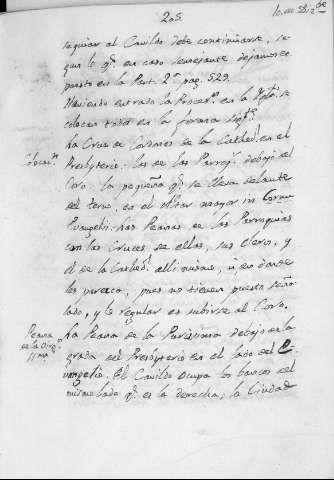 205.
10. de Dic.bre
seguiar al Cavildo debe continuarse, se-
gun lo q.e en caso semejante dejamos ex-
puesto en la Part. 2.a pag. 529.
Haviendo entrado la Proces.n en la Ygl.a se
colocan todos en la forma sig.te
La Cruz de Carmes de la Cathed.l en el
Presbyterio: las de las Parroq.s debajo del
Coro. La pequeña q.e se lleva delante
del Terno, en el Altar mayor in Cornu
Evangelii. Las Peanas de las Parroquias
con las Cruces de ellas, sus Clero, y
el de la Cathed.l alli mismo, ú en donde
les parezca, pues no tienen puesto seña-
lado, y lo regular es subirse al Coro.
La Peana de la Purisima debajo de la
grada del Presbyterio en el lado del E-
vangelio. El Cavildo ocupa los bancos del
mismo lado q.e es la derecha; la Ciudad
Colocac.n
Peana
de la Orq.n
11 no